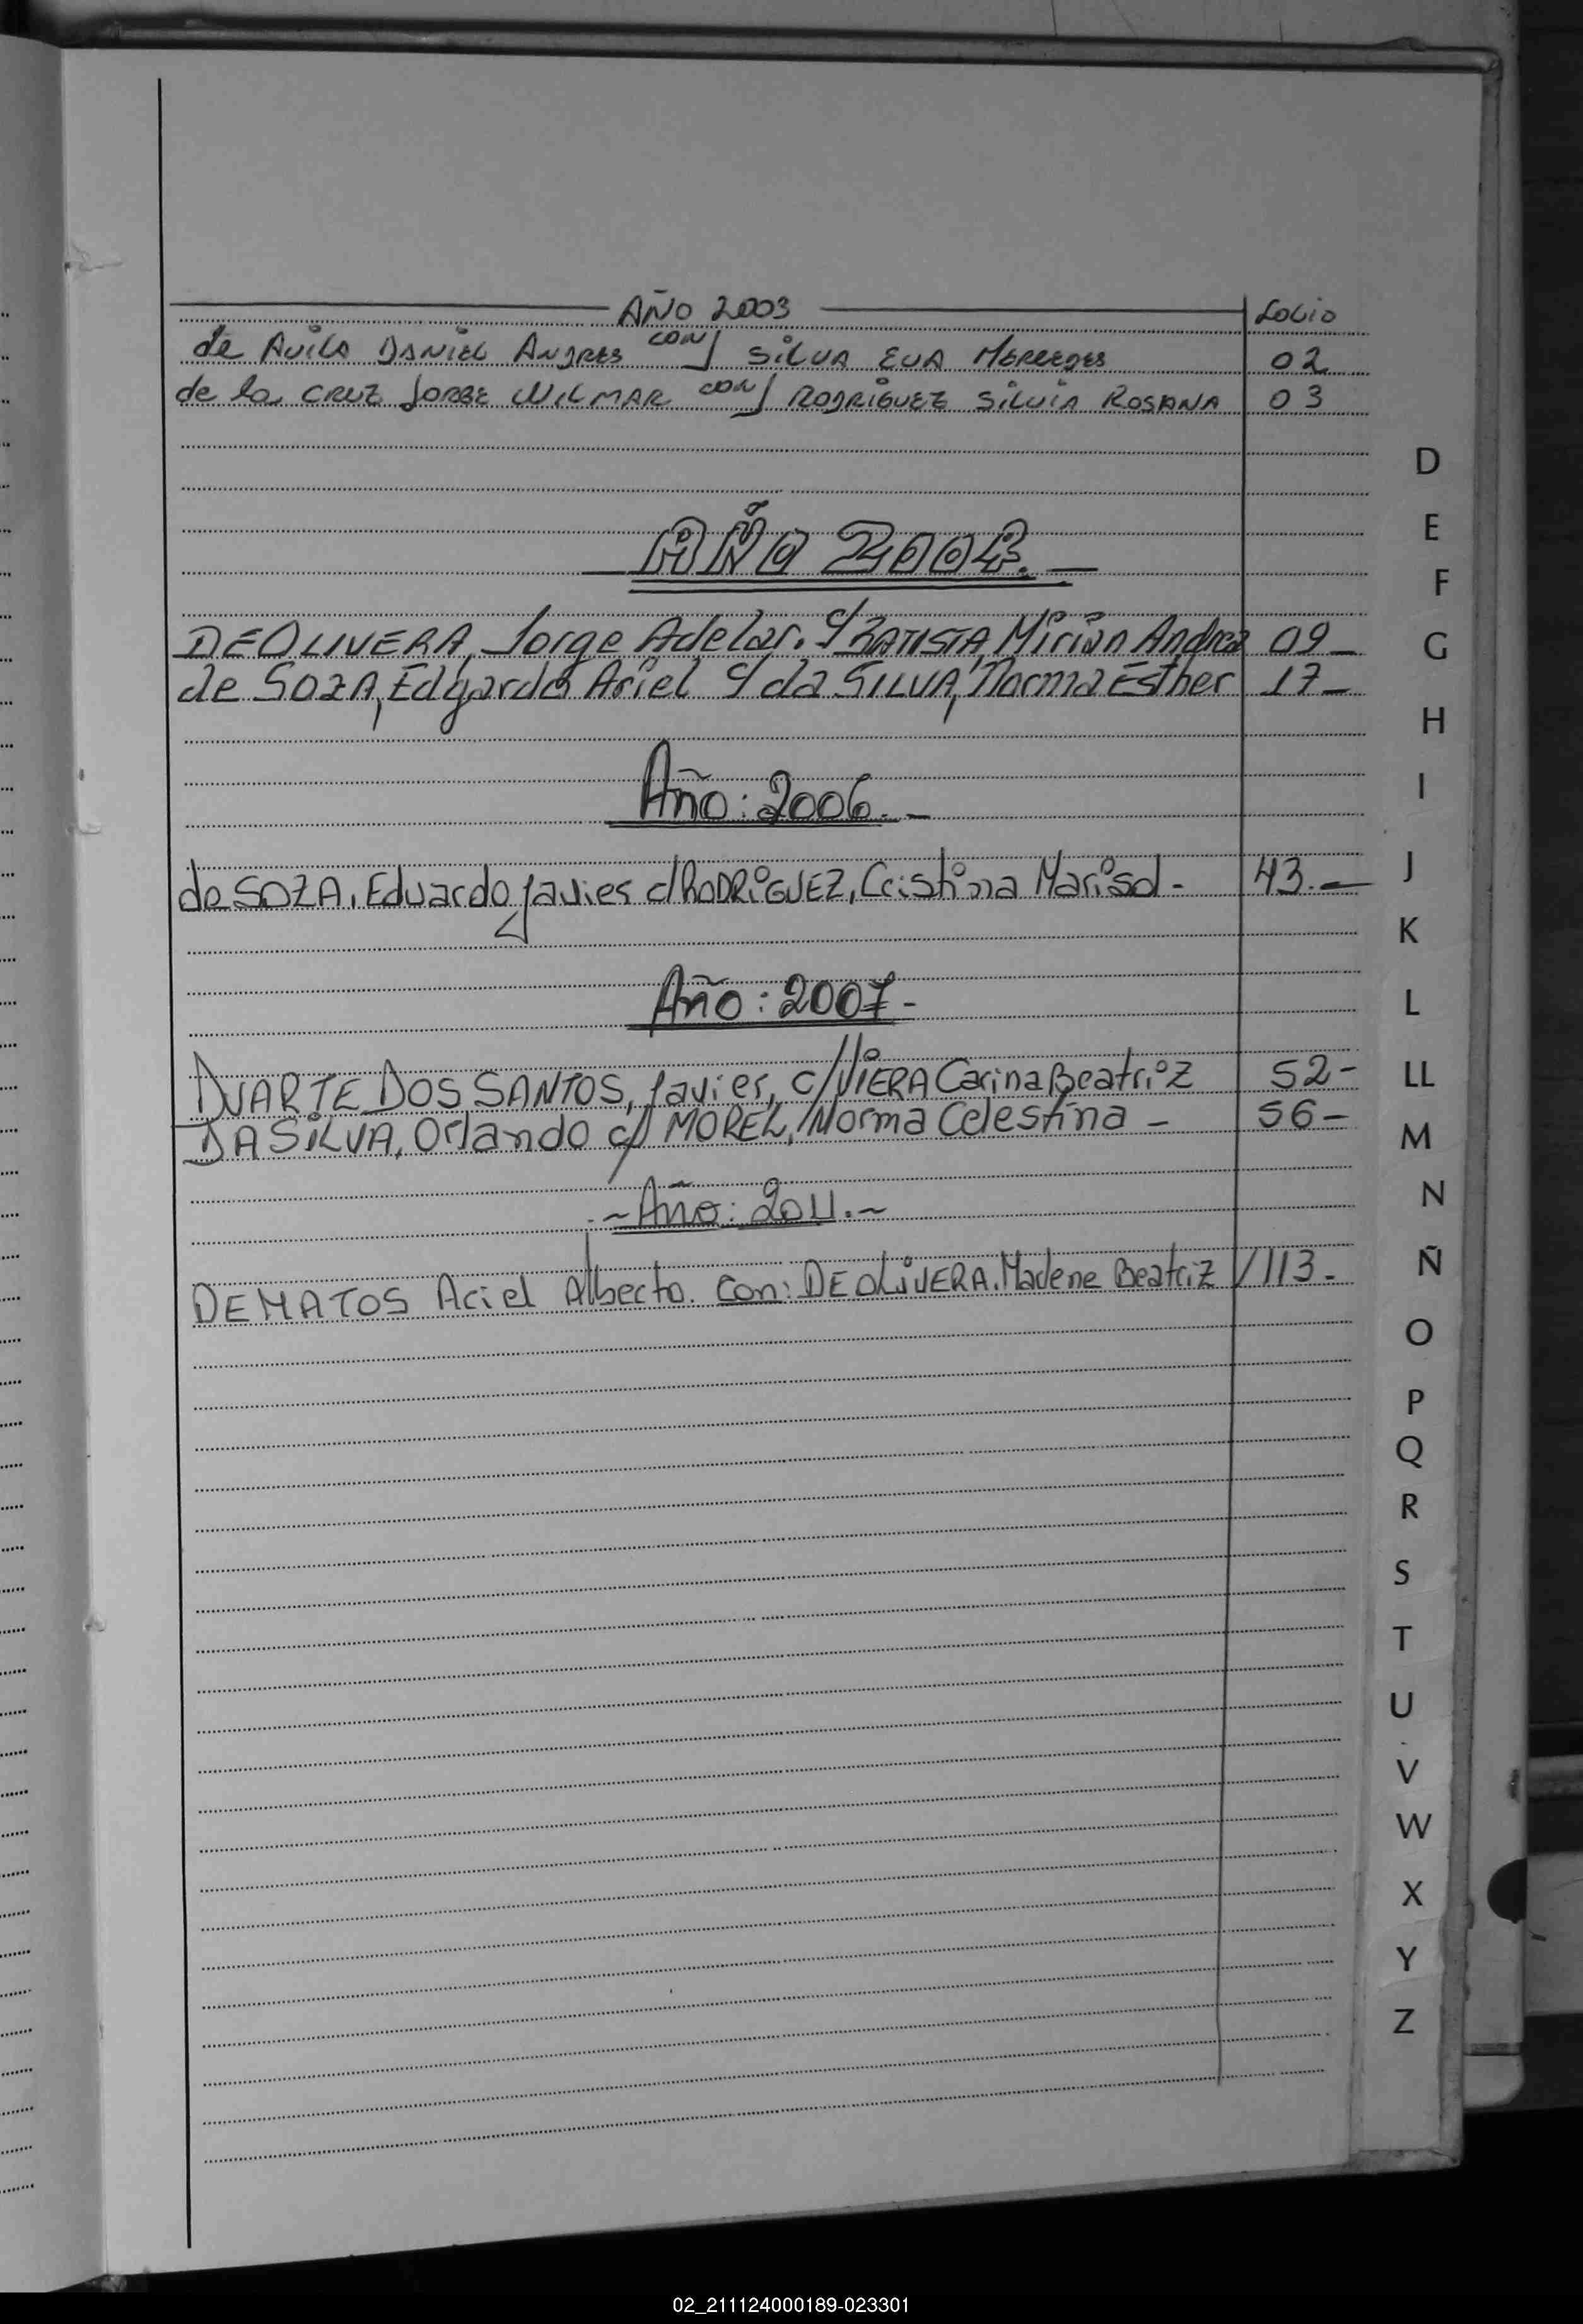 AÑO 2003 Folio
de Avila DANIEL ANDRES con/ SILVA EVA MERCEDES 02
de la CRUZ JORGE WILMAR con/ RODRIGUEZ SILVIA ROSANA 03
AÑO 2004.
DEOLIVERA, Jorge Adelar. c/ BATISTA, Mirian Andrea 09_
de SOZA, Edgardo Ariel c/ da SILVA, Norma Esther 17_
Año: 2006.-
de SOZA, Eduardo Javier c/ RODRIGUEZ, Cristina Marisol - 43.-
Año: 2007-
DUARTE DOS SANTOS, Javier, c/ VIERA Carina Beatriz 52-
DA SILVA, Orlando c/ MOREL, Norma Celestina - 56-
.~Año: 2011.~
DEMATOS Ariel Alberto. Con: DEOLIVERA. Marlene Beatriz / 113.-
D
E
F
G
H
I
J
K
L
LL
M
N
Ñ
O
P
Q
R
S
T
U
V
W
X
Y
Z
02_211124000189-023301